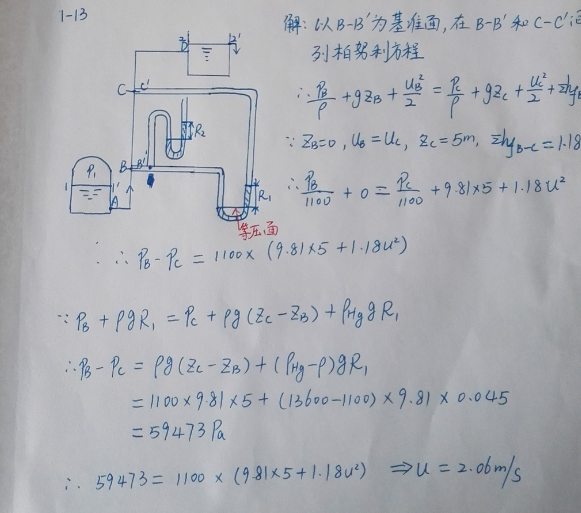 1-13
解: 以B-B'为基准面,在B-B'和C-C'间
列柏努利方程
∴ P_B/ρ + gZ_B + U_B²/2 = P_C/ρ + gZ_C + U_C²/2 + Σhf_B
∵ Z_B=0, U_B=U_C, Z_C=5m, Σhf_B-C=1.18
∴ P_B/1100 + 0 = P_C/1100 + 9.81×5 + 1.18U²
2 2'
C C'
R_2
P_1
B B'
1 1'
A
R_1
等压面
∴ P_B - P_C = 1100 × (9.81×5 + 1.18u²)
∵ P_B + ρgR_1 = P_C + ρg(Z_C-Z_B) + ρ_Hg g R_1
∴ P_B - P_C = ρg(Z_C-Z_B) + (ρ_Hg-ρ)gR_1
= 1100×9.81×5 + (13600-1100)×9.81×0.045
= 59473 Pa
∴ 59473 = 1100 × (9.81×5+1.18u²) ⇒ u = 2.06 m/s